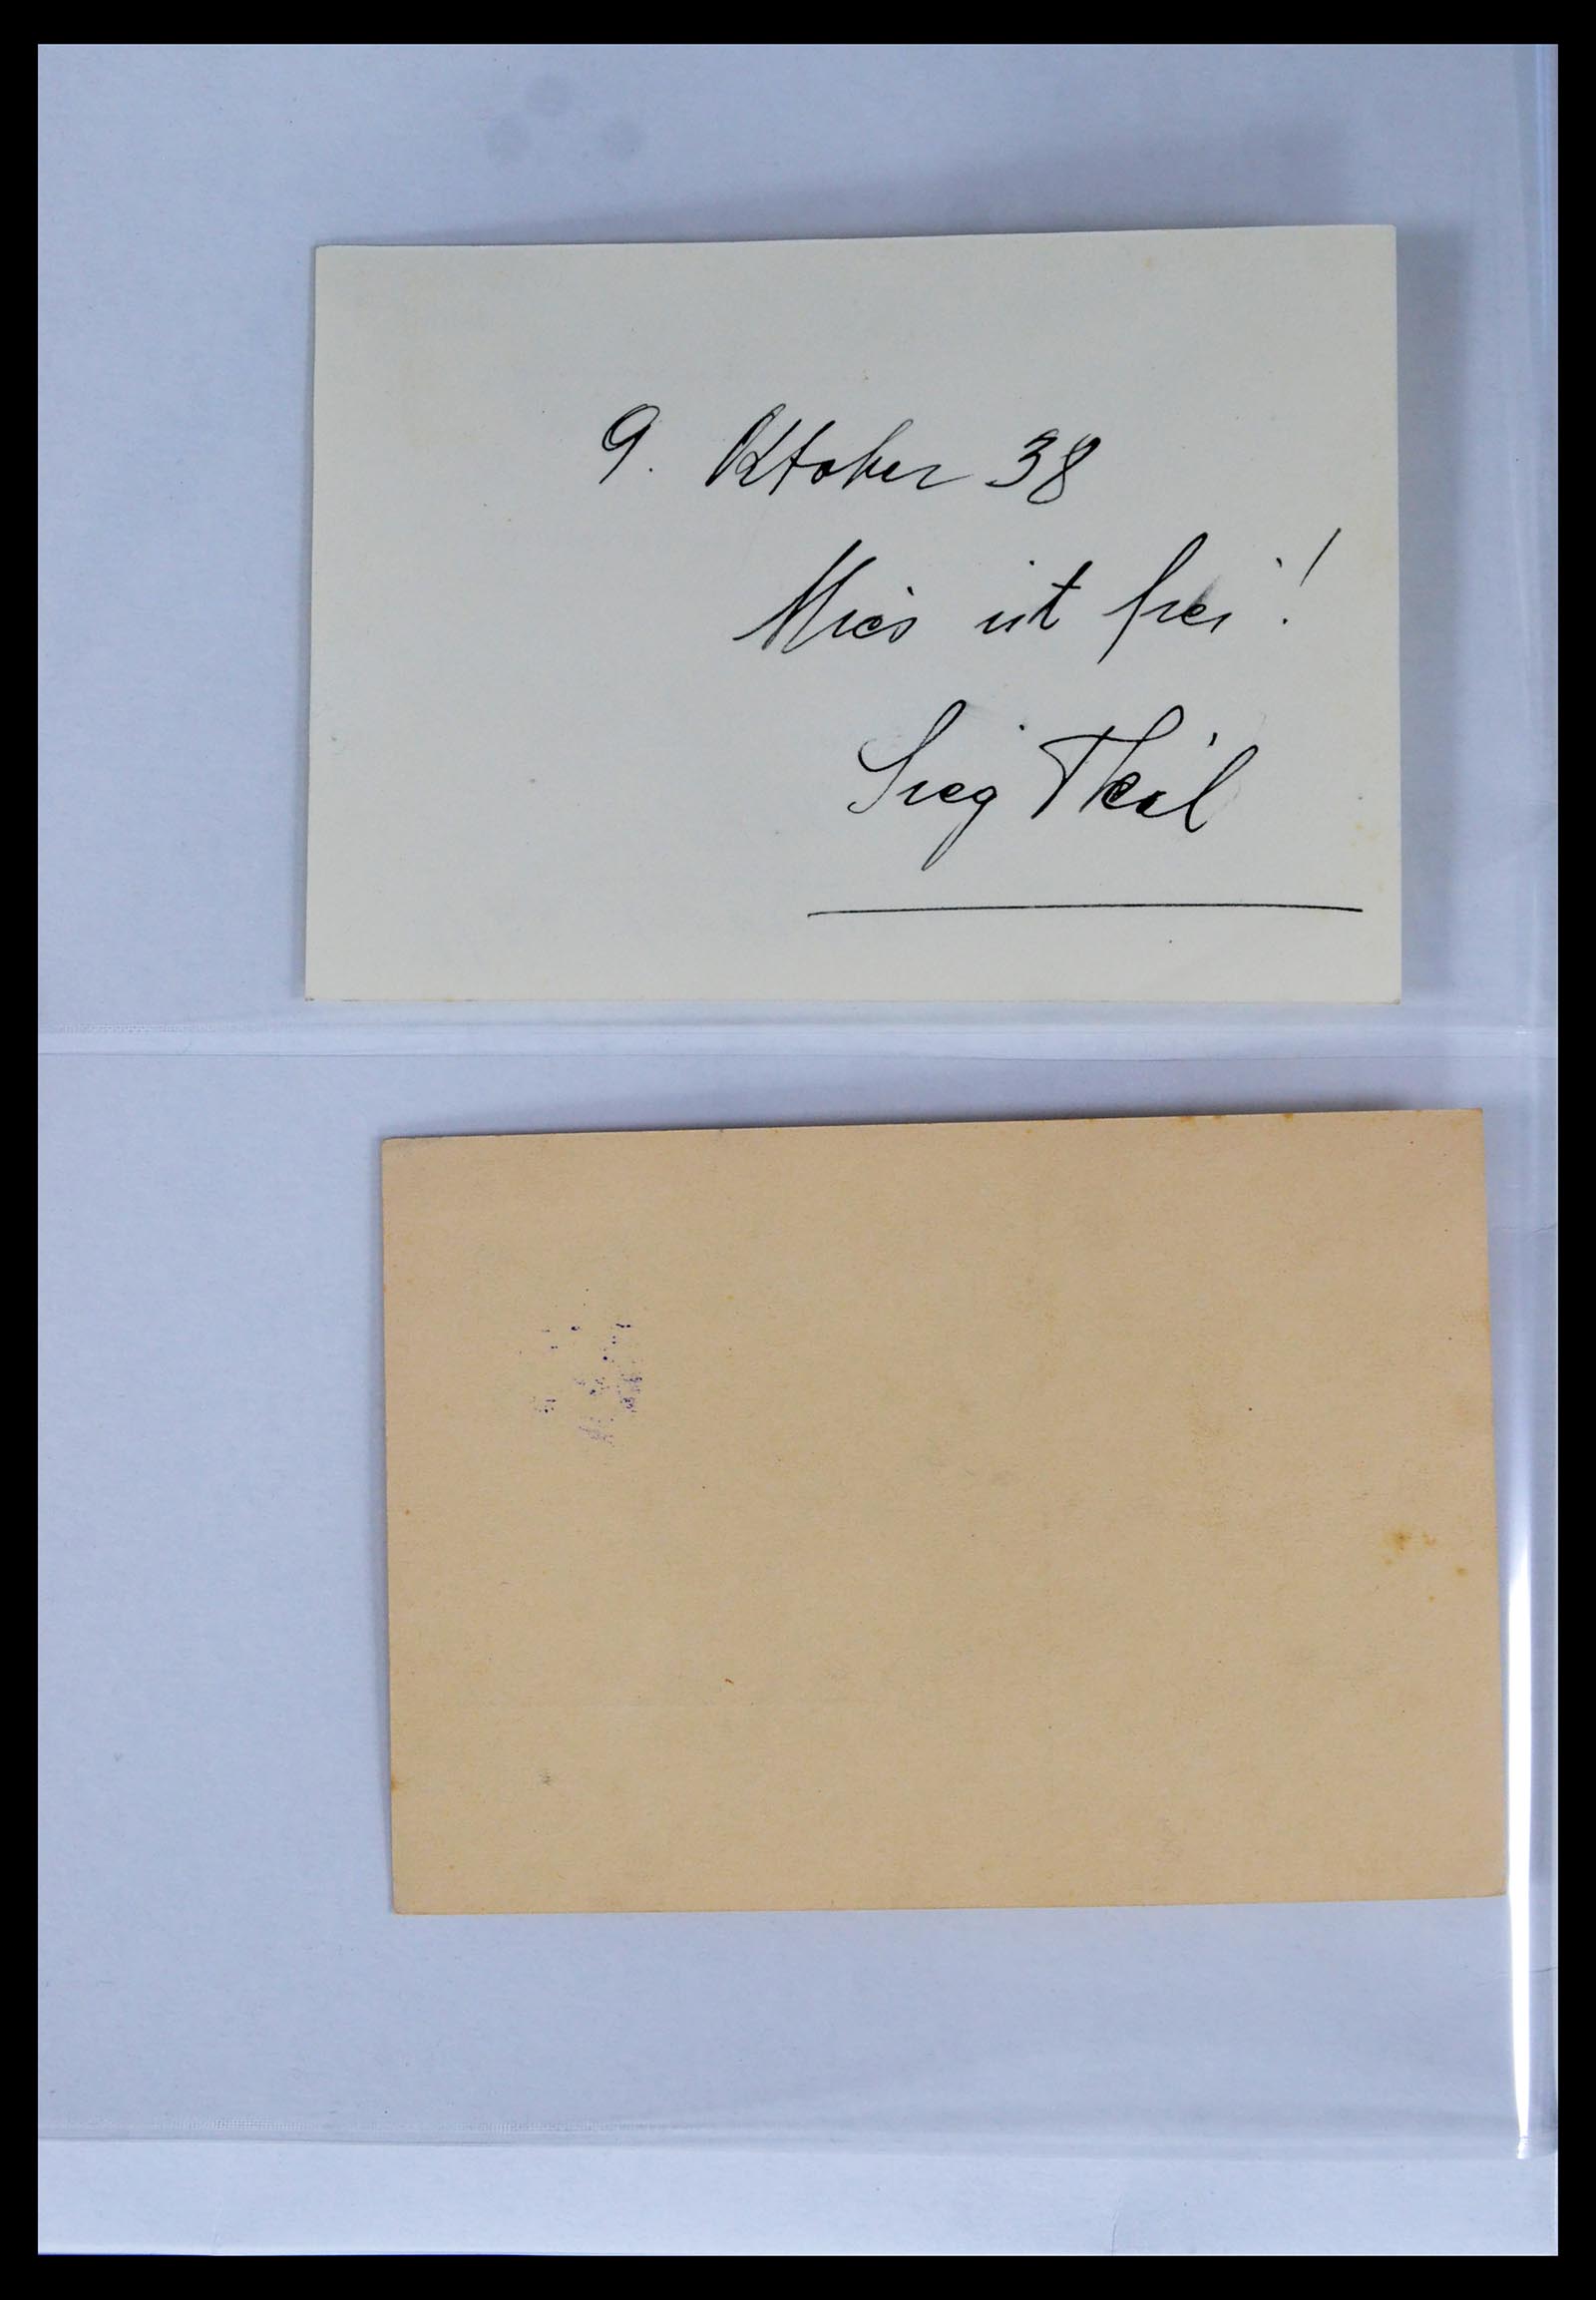 9. Oktober 38
Mies ist frei!
Sieg Heil